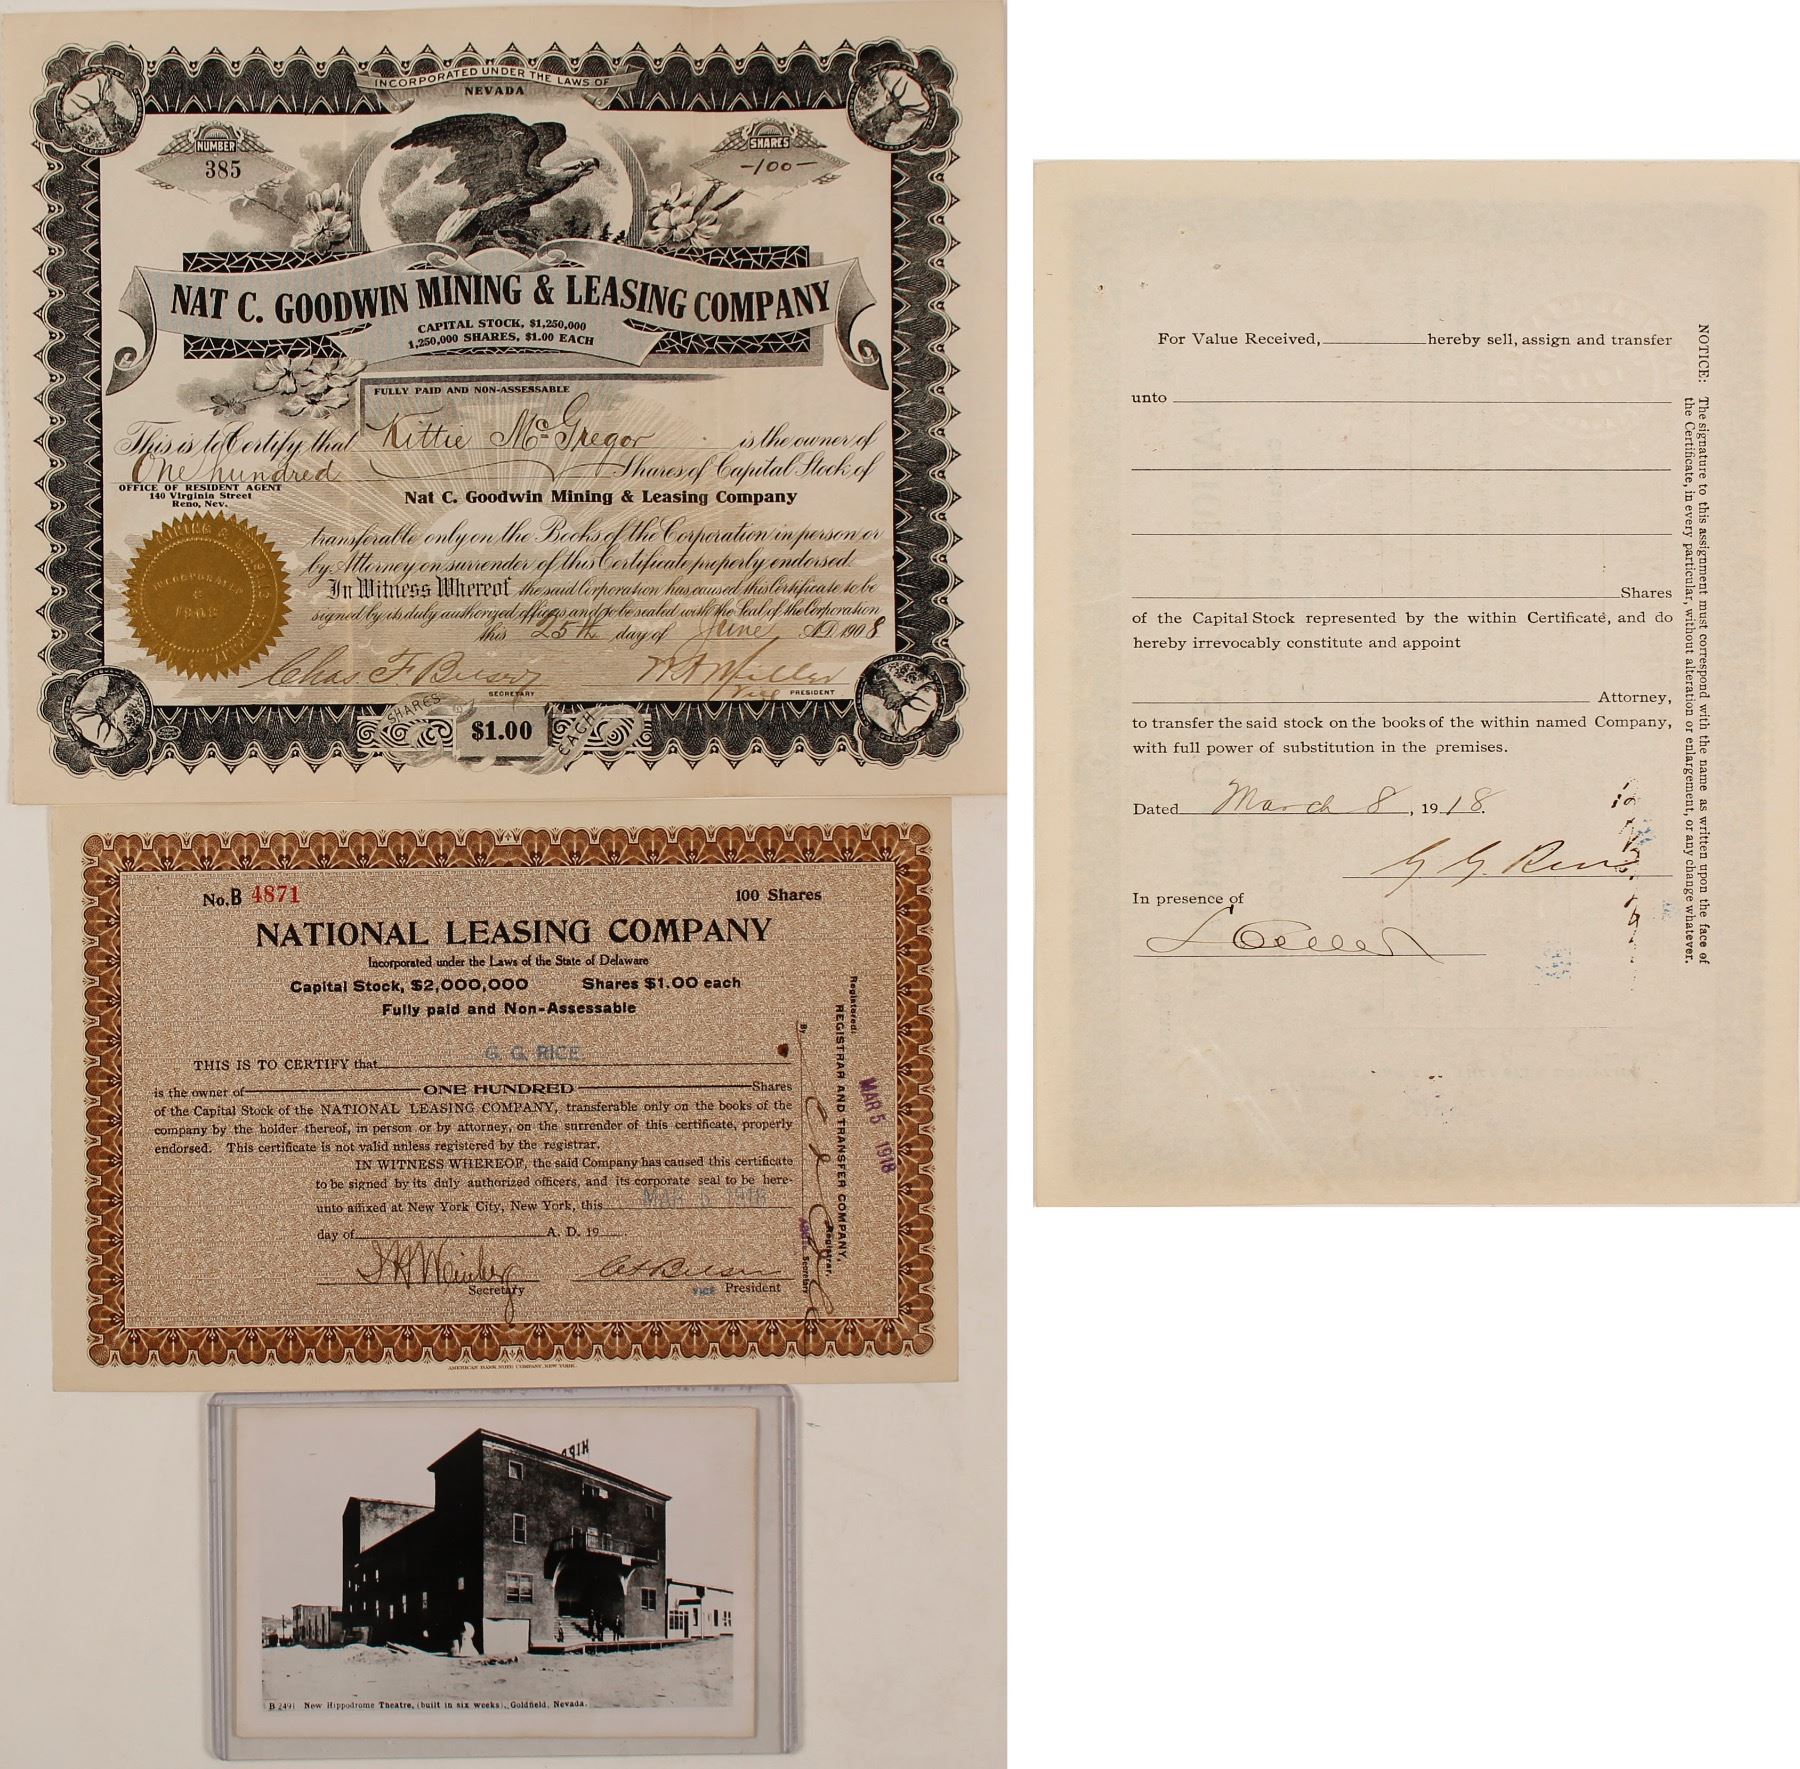 INCORPORATED UNDER THE LAWS OF
NEVADA
NUMBER
385
SHARES
-100-
NAT C. GOODWIN MINING & LEASING COMPANY
CAPITAL STOCK, $1,250,000
1,250,000 SHARES, $1.00 EACH
FULLY PAID AND NON-ASSESSABLE
This is to Certify that Kittie McGregor is the owner of
One hundred Shares of Capital Stock of
OFFICE OF RESIDENT AGENT
140 Virginia Street
Reno, Nev.
Nat C. Goodwin Mining & Leasing Company
transferable only on the Books of the Corporation in person or
by Attorney on surrender of this Certificate properly endorsed.
In Witness Whereof the said Corporation has caused this Certificate to be
signed by its duly authorized officers and to be sealed with the Seal of the Corporation
this 25th day of June A.D. 1908
INCORPORATED
1908
Chas. F.
W H Miller
SECRETARY
Vice PRESIDENT
SHARES
$1.00
EACH
No. B 4871
100 Shares
NATIONAL LEASING COMPANY
Incorporated under the Laws of the State of Delaware
Capital Stock, $2,000,000 Shares $1.00 each
Fully paid and Non-Assessable
THIS IS TO CERTIFY that G. G. RICE
is the owner of ONE HUNDRED Shares
of the Capital Stock of the NATIONAL LEASING COMPANY, transferable only on the books of the
company by the holder thereof, in person or by attorney, on the surrender of this certificate, properly
endorsed. This certificate is not valid unless registered by the registrar.
IN WITNESS WHEREOF, the said Company has caused this certificate
to be signed by its duly authorized officers, and its corporate seal to be here-
unto affixed at New York City, New York, this MAR 5 1918
day of A. D. 19
Weinberg
Secretary
VICE President
Registered:
REGISTRAR AND TRANSFER COMPANY,
Registrar.
By
Secretary
MAR 5 1918
AMERICAN BANK NOTE COMPANY, NEW YORK.
HIPP
B 2491 New Hippodrome Theatre, (built in six weeks), Goldfield, Nevada.
For Value Received, hereby sell, assign and transfer
unto
Shares
of the Capital Stock represented by the within Certificate, and do
hereby irrevocably constitute and appoint
Attorney,
to transfer the said stock on the books of the within named Company,
with full power of substitution in the premises.
Dated March 8, 1918.
G G Rice
In presence of
NOTICE: The signature to this assignment must correspond with the name as written upon the face of
the Certificate, in every particular, without alteration or enlargement, or any change whatever.